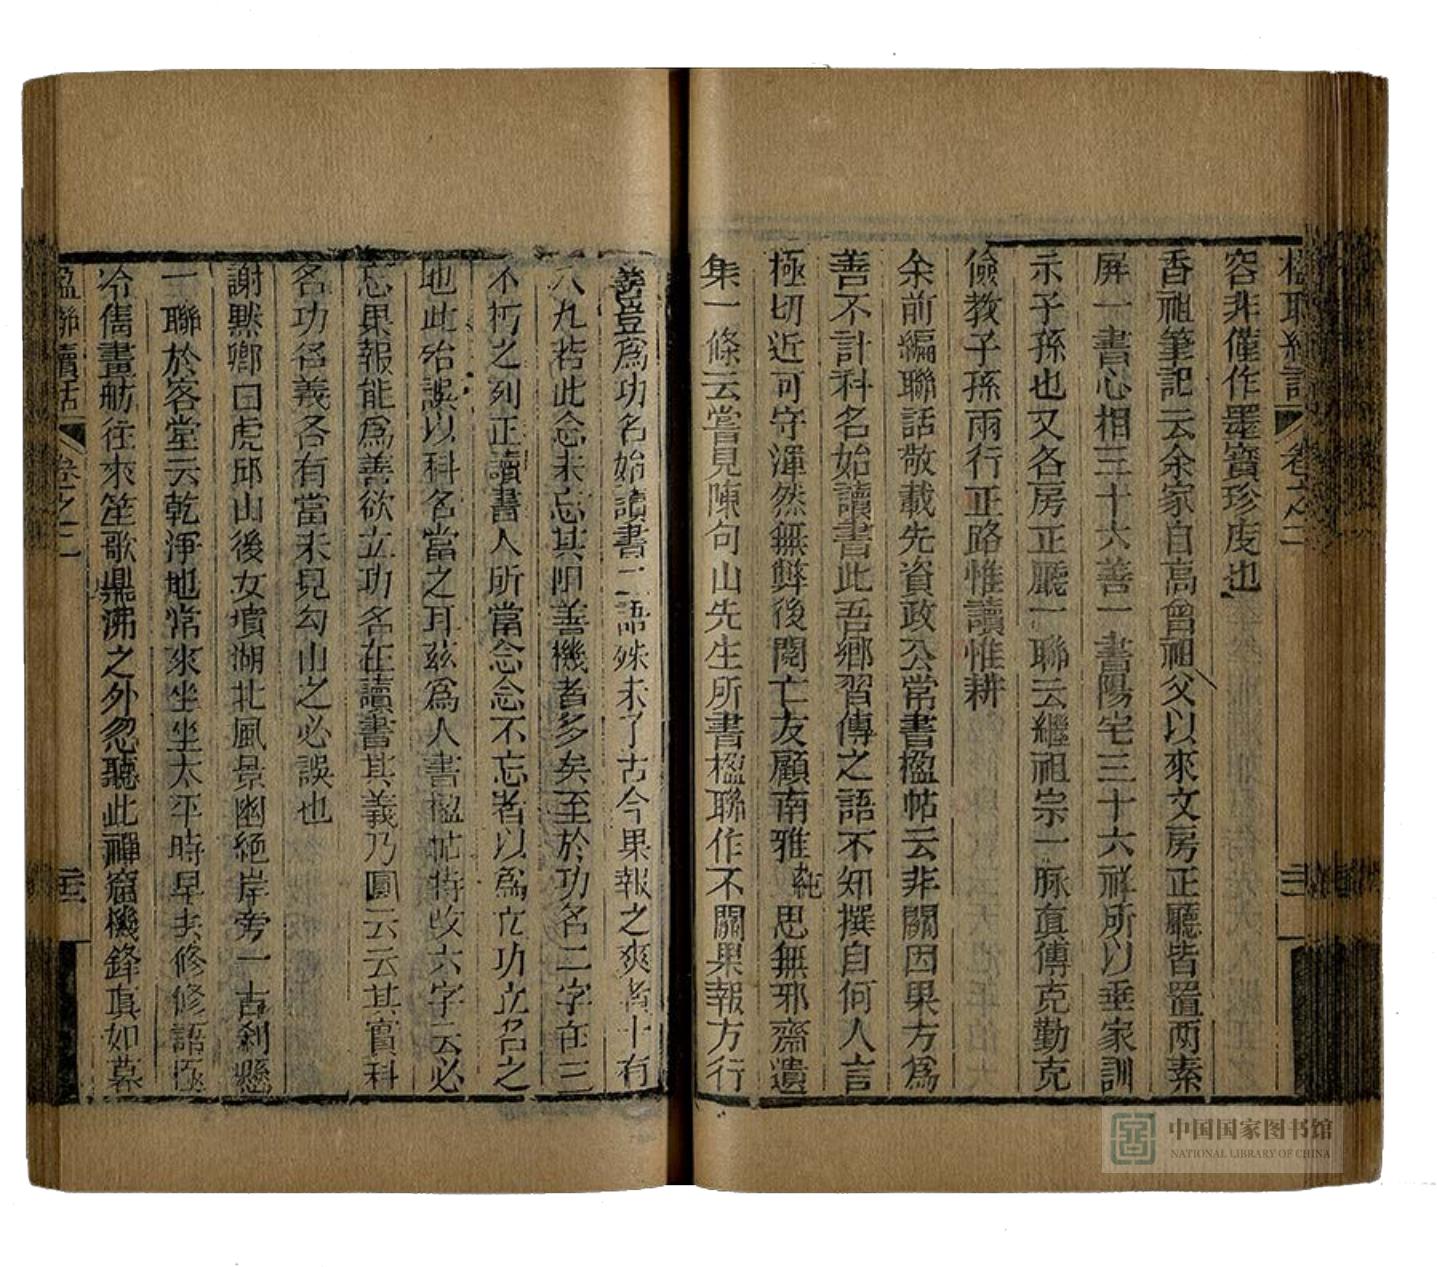 楹聯續話 卷之二 二十二
容非僅作墨寶珍庋也
香祖筆記云余家自高曾祖父以來文房正廳皆置兩素
屏一書心相三十六善一書陽宅三十六祥所以垂家訓
示子孫也又各房正廳一聯云繼祖宗一脉真傳克勤克
儉教子孫兩行正路惟讀惟耕
余前編聯話敬載先資政公常書楹帖云非關因果方為
善不計科名始讀書此吾鄉習傳之語不知撰自何人言
極切近可守渾然無弊後閱亡友顧南雅純思無邪齋遺
集一條云嘗見陳句山先生所書楹聯作不關果報方行
善豈為功名始讀書二語殊未了古今果報之爽者十有
八九若此念未忘其阻善機者多矣至於功名二字在三
不朽之列正讀書人所當念念不忘者以為立功立名之
地此殆誤以科名當之耳茲為人書楹帖特改六字云必
忘果報能為善欲立功名在讀書其義乃圓云云其實科
名功名義各有當未見勾山之必誤也
謝默卿曰虎邱山後女墳湖北風景幽絕岸旁一古剎懸
一聯於客堂云乾淨地常來坐坐太平時早去修修語極
冷雋畫舫往來笙歌鼎沸之外忽聽此禪窟機鋒真如暮
楹聯續話 卷之二 二十三
中国国家图书馆
NATIONAL LIBRARY OF CHINA